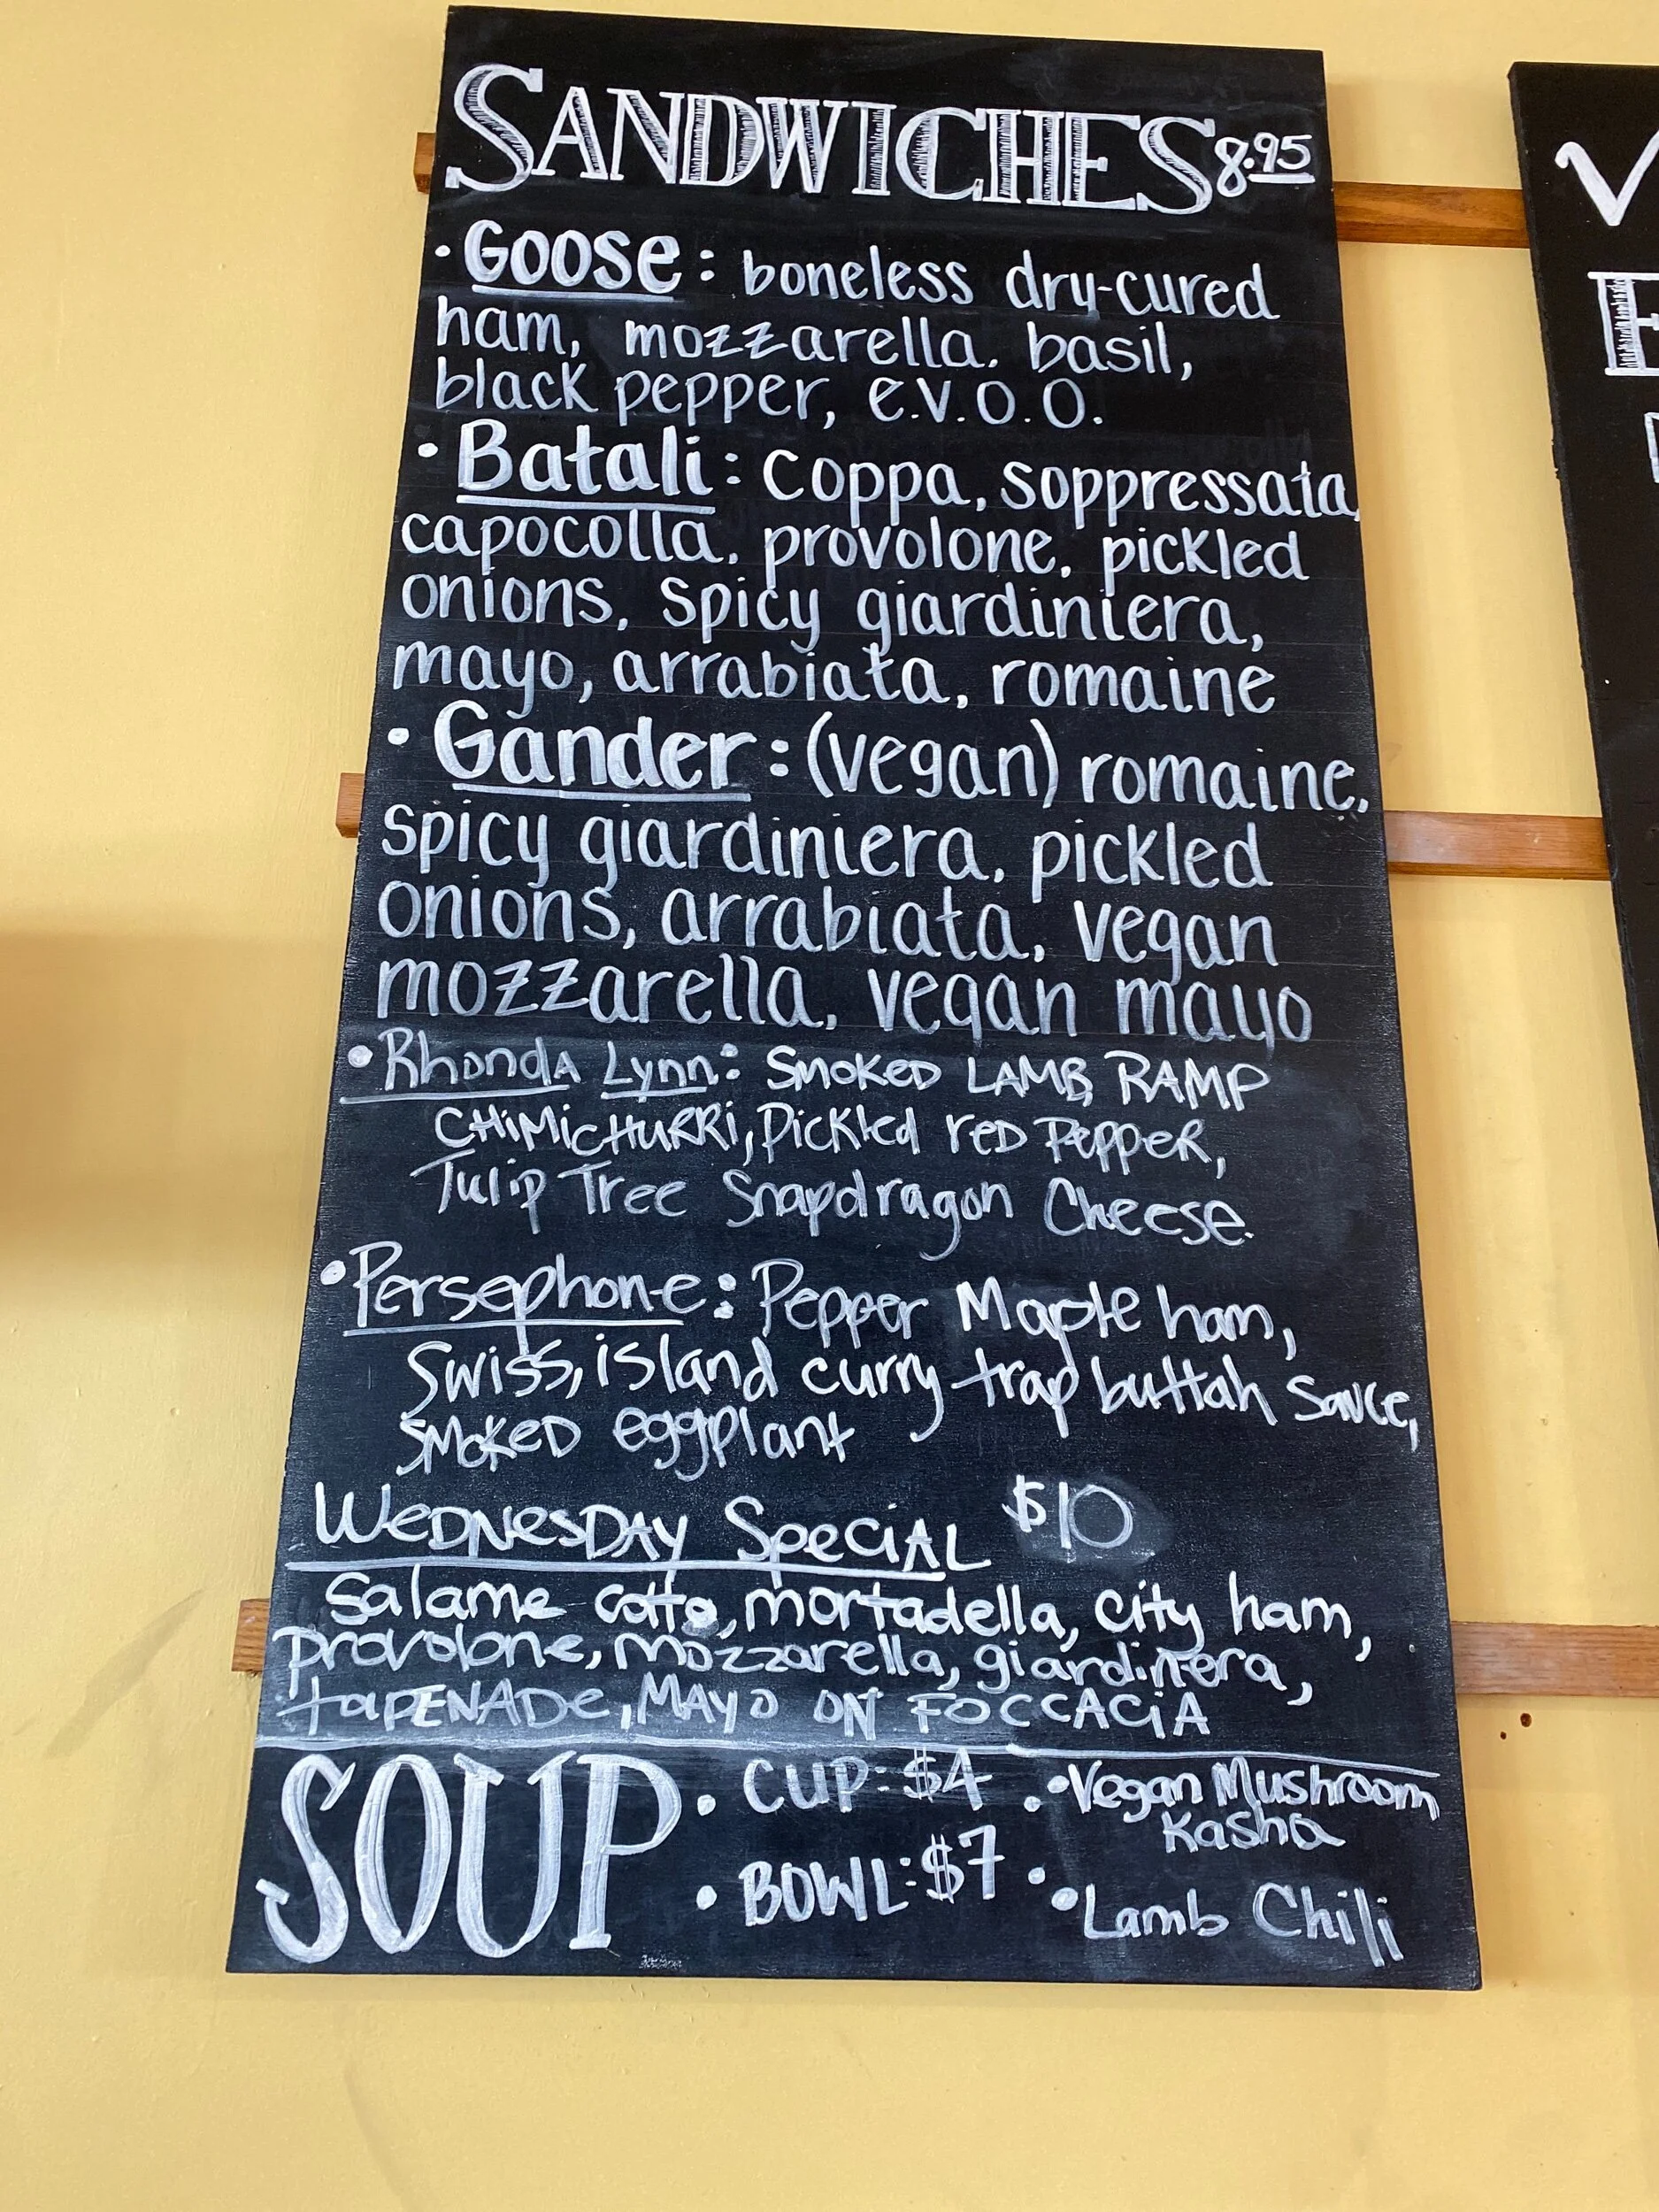 SANDWICHES 8.95
• Goose: boneless dry-cured
ham, mozzarella, basil,
black pepper, e.v.o.o.
• Batali: coppa, soppressata,
capocolla, provolone, pickled
onions, spicy giardiniera,
mayo, arrabiata, romaine
• Gander: (vegan) romaine,
spicy giardiniera, pickled
onions, arrabiata, vegan
mozzarella, vegan mayo
• Rhonda Lynn: Smoked LAMB, RAMP
CHiMiCHURRi, Pickled red Pepper,
Tulip Tree Snapdragon Cheese.
• Persephone: Pepper Maple ham,
Swiss, island curry trap buttah sauce,
smoked eggplant
WEDNESDAY SpeciAL $10
Salame cotto, mortadella, city ham,
provolone, mozzarella, giardinera,
tapENADe, MAYO ON FOCCACiA
SOUP • CUP: $4 • Vegan Mushroom
Kasha
• BOWL: $7 • Lamb Chili